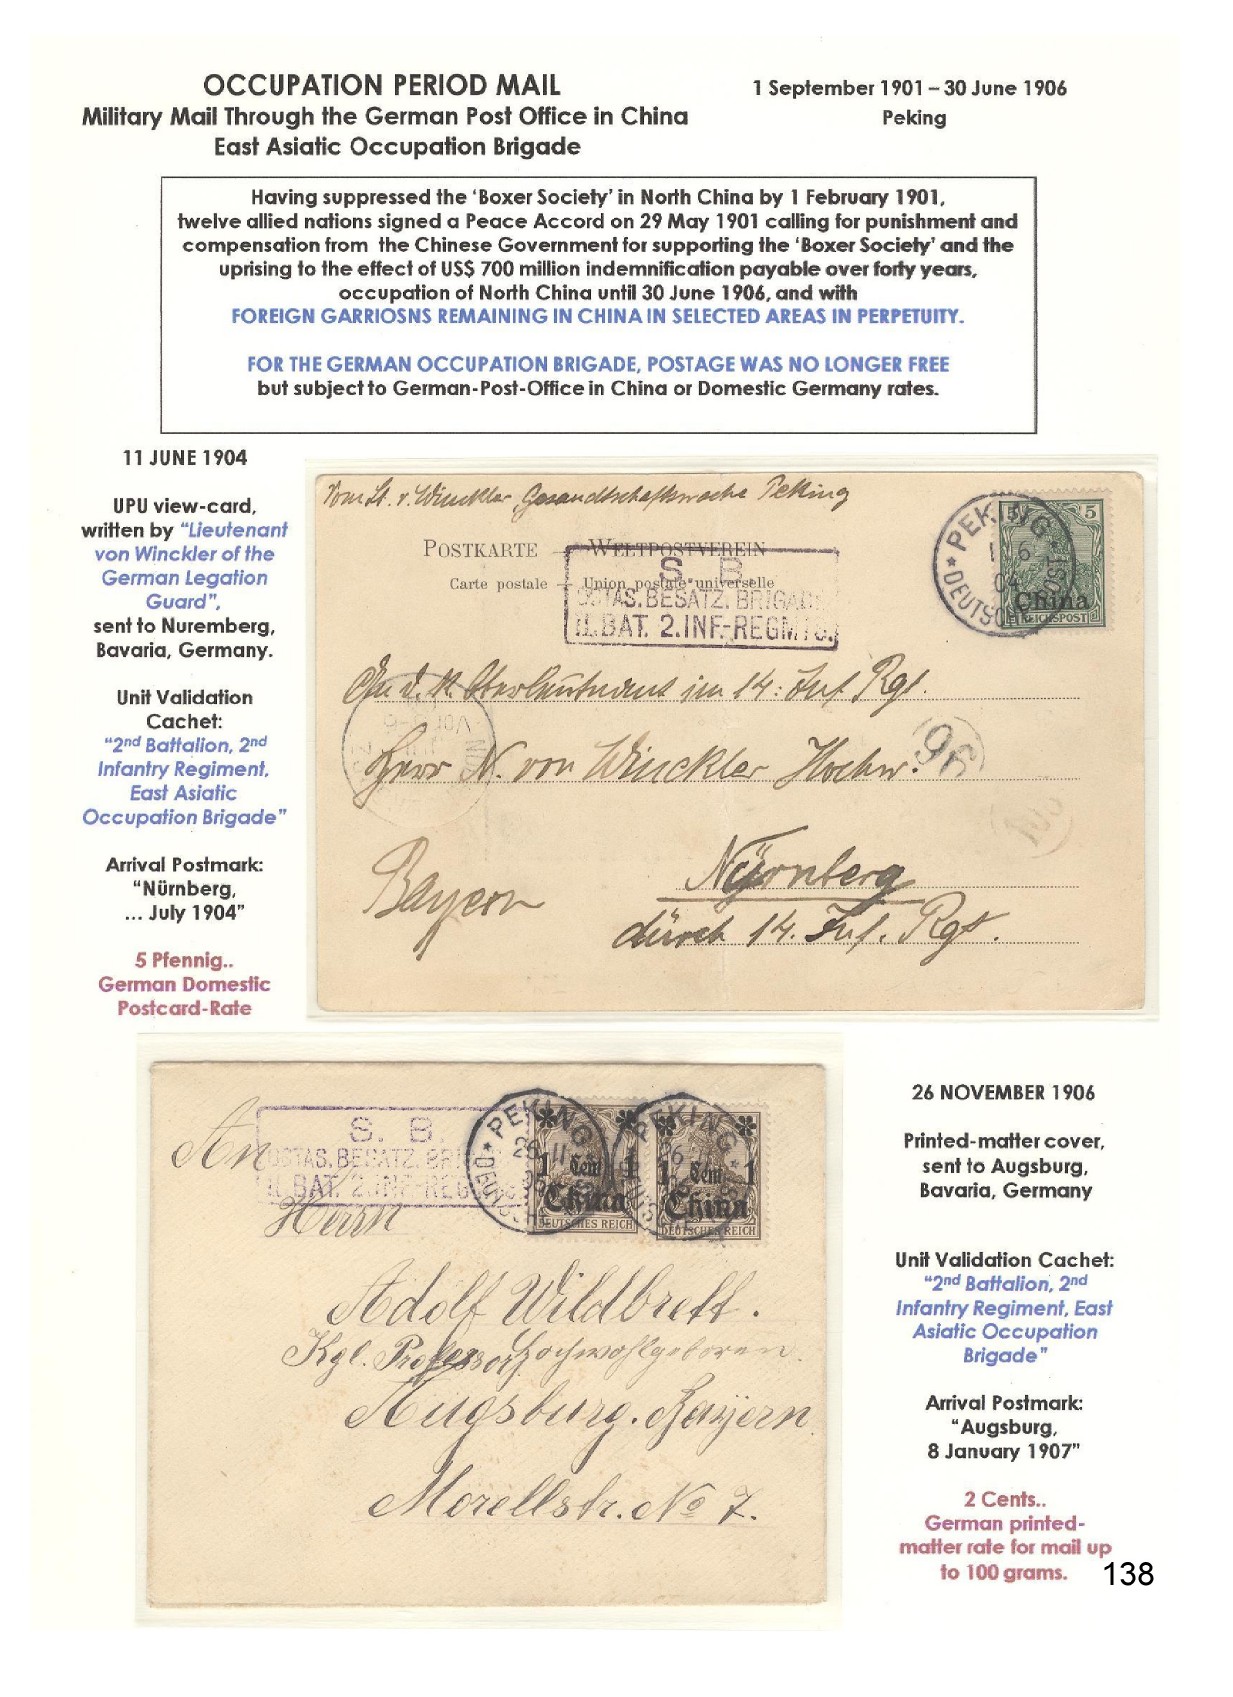 OCCUPATION PERIOD MAIL
Military Mail Through the German Post Office in China
East Asiatic Occupation Brigade
1 September 1901 – 30 June 1906
Peking
Having suppressed the ‘Boxer Society’ in North China by 1 February 1901,
twelve allied nations signed a Peace Accord on 29 May 1901 calling for punishment and
compensation from the Chinese Government for supporting the ‘Boxer Society’ and the
uprising to the effect of US$ 700 million indemnification payable over forty years,
occupation of North China until 30 June 1906, and with
FOREIGN GARRIOSNS REMAINING IN CHINA IN SELECTED AREAS IN PERPETUITY.
FOR THE GERMAN OCCUPATION BRIGADE, POSTAGE WAS NO LONGER FREE
but subject to German-Post-Office in China or Domestic Germany rates.
11 JUNE 1904
UPU view-card,
written by “Lieutenant
von Winckler of the
German Legation
Guard”,
sent to Nuremberg,
Bavaria, Germany.
Unit Validation
Cachet:
“2nd Battalion, 2nd
Infantry Regiment,
East Asiatic
Occupation Brigade”
Arrival Postmark:
“Nürnberg,
... July 1904”
5 Pfennig..
German Domestic
Postcard-Rate
Vom Lt. v. Winckler, Gesandtschaftswache Peking
POSTKARTE – WELTPOSTVEREIN
Carte postale – Union postale universelle
S. B.
OSTAS. BESATZ. BRIGADE
II. BAT. 2. INF.-REGMTS.
PEKING
6
04
DEUTSCHE POST
5 5
China
REICHSPOST
An d. K. Oberleutnant im 14. Inf. Rgt.
Herr N. von Winckler Hochw.
96
Bayern
Nürnberg
durch 14. Inf. Rgt.
An
S. B.
OSTAS. BESATZ. BRI
II. BAT. 2. INF.-REG
PEKING
26 11
DEUTSCHE
1 Cent 1
China
DEUTSCHES REICH
PEKING
26
1 Cent 1
China
DEUTSCHES REICH
Herrn
Adolf Wildbrett.
Kgl. Professor, Hochwohlgeboren.
Augsburg. Bayern
Morellstr. No 7.
26 NOVEMBER 1906
Printed-matter cover,
sent to Augsburg,
Bavaria, Germany
Unit Validation Cachet:
“2nd Battalion, 2nd
Infantry Regiment, East
Asiatic Occupation
Brigade”
Arrival Postmark:
“Augsburg,
8 January 1907”
2 Cents..
German printed-
matter rate for mail up
to 100 grams.
138